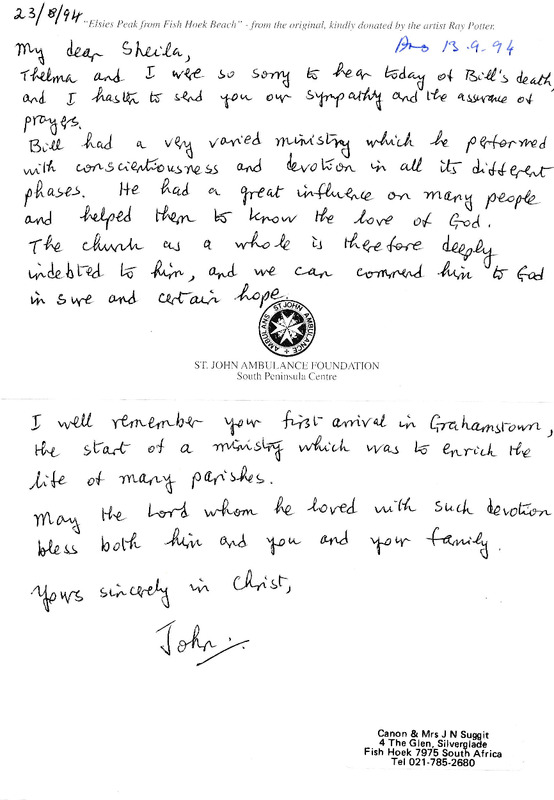 23/8/94
"Elsies Peak from Fish Hoek Beach" - from the original, kindly donated by the artist Ray Potter.
Ans 13.9.94
My dear Sheila,
Thelma and I were so sorry to hear today of Bill's death,
and I hasten to send you our sympathy and the assurance of
prayers.
Bill had a very varied ministry which he performed
with conscientiousness and devotion in all its different
phases. He had a great influence on many people
and helped them to know the love of God.
The church as a whole is therefore deeply
indebted to him, and we can commend him to God
in sure and certain hope.
ST JOHN AMBULANCE
AMBULANS
ST. JOHN AMBULANCE FOUNDATION
South Peninsula Centre
I well remember your first arrival in Grahamstown,
the start of a ministry which was to enrich the
life of many parishes.
May the Lord whom he loved with such devotion
bless both him and you and your family.
Yours sincerely in Christ,
John.
Canon & Mrs J N Suggit
4 The Glen, Silverglade
Fish Hoek 7975 South Africa
Tel 021-785-2680